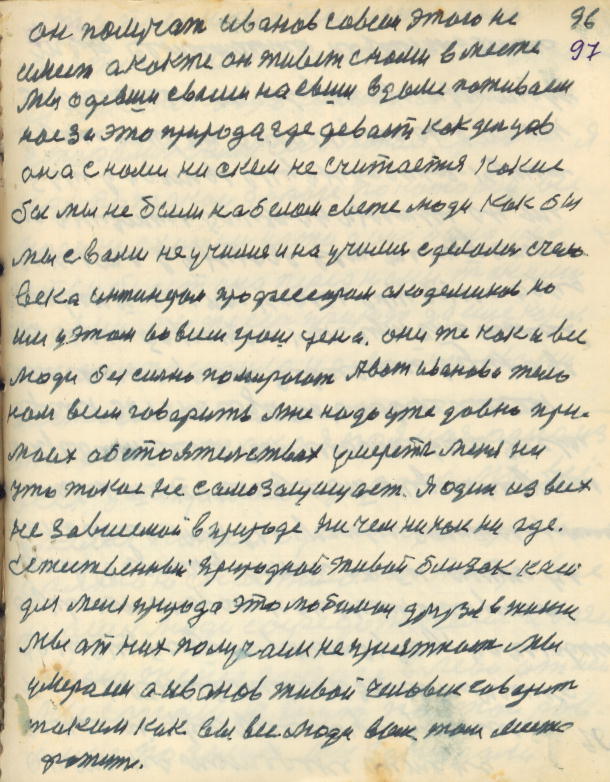 он получат иванов совсем этого не 96
имеет а какже он живет снами вместе 97
мы одевши своими насеми вдоме поживаем
нас за это природа где девает как демцов
она снами ни скем не считается какие
бы мы не были на белом свете люди как бы
мы свами не учился и на учился сделался с чело
века профессором академиков но
им у этом во всем грош цена. они же как и все
люди бессилно помирают Авот иванова тело
нам всем говорить мне надо уже давно при
моих обстоятельствах умереть меня ни
что такое не самозащищает. Я один из всех
не зависемой вприроде ни чем ни как ни где.
Естественный природной живой близок к ней
для меня природа это любимои друзя в жизни
мы ат них получаем не приятност мы
умераем а иванов живой человек говорит
таким как вы все люди вам там место